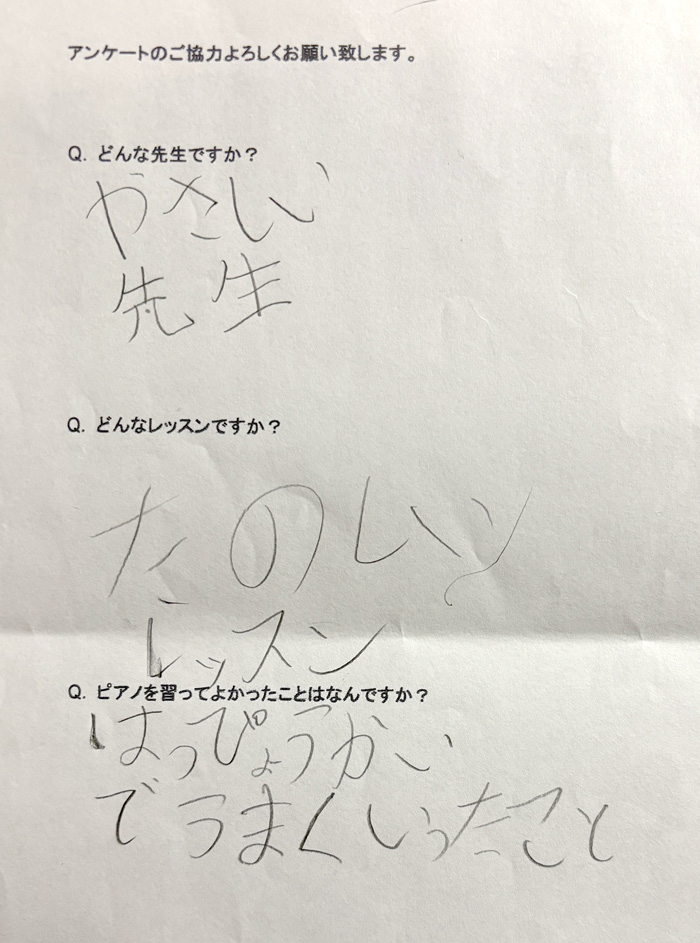 アンケートのご協力よろしくお願い致します。
Q. どんな先生ですか？
やさしい
先生
Q. どんなレッスンですか？
たのしい
レッスン
Q. ピアノを習ってよかったことはなんですか？
はっぴょうかい
でうまくいったこと